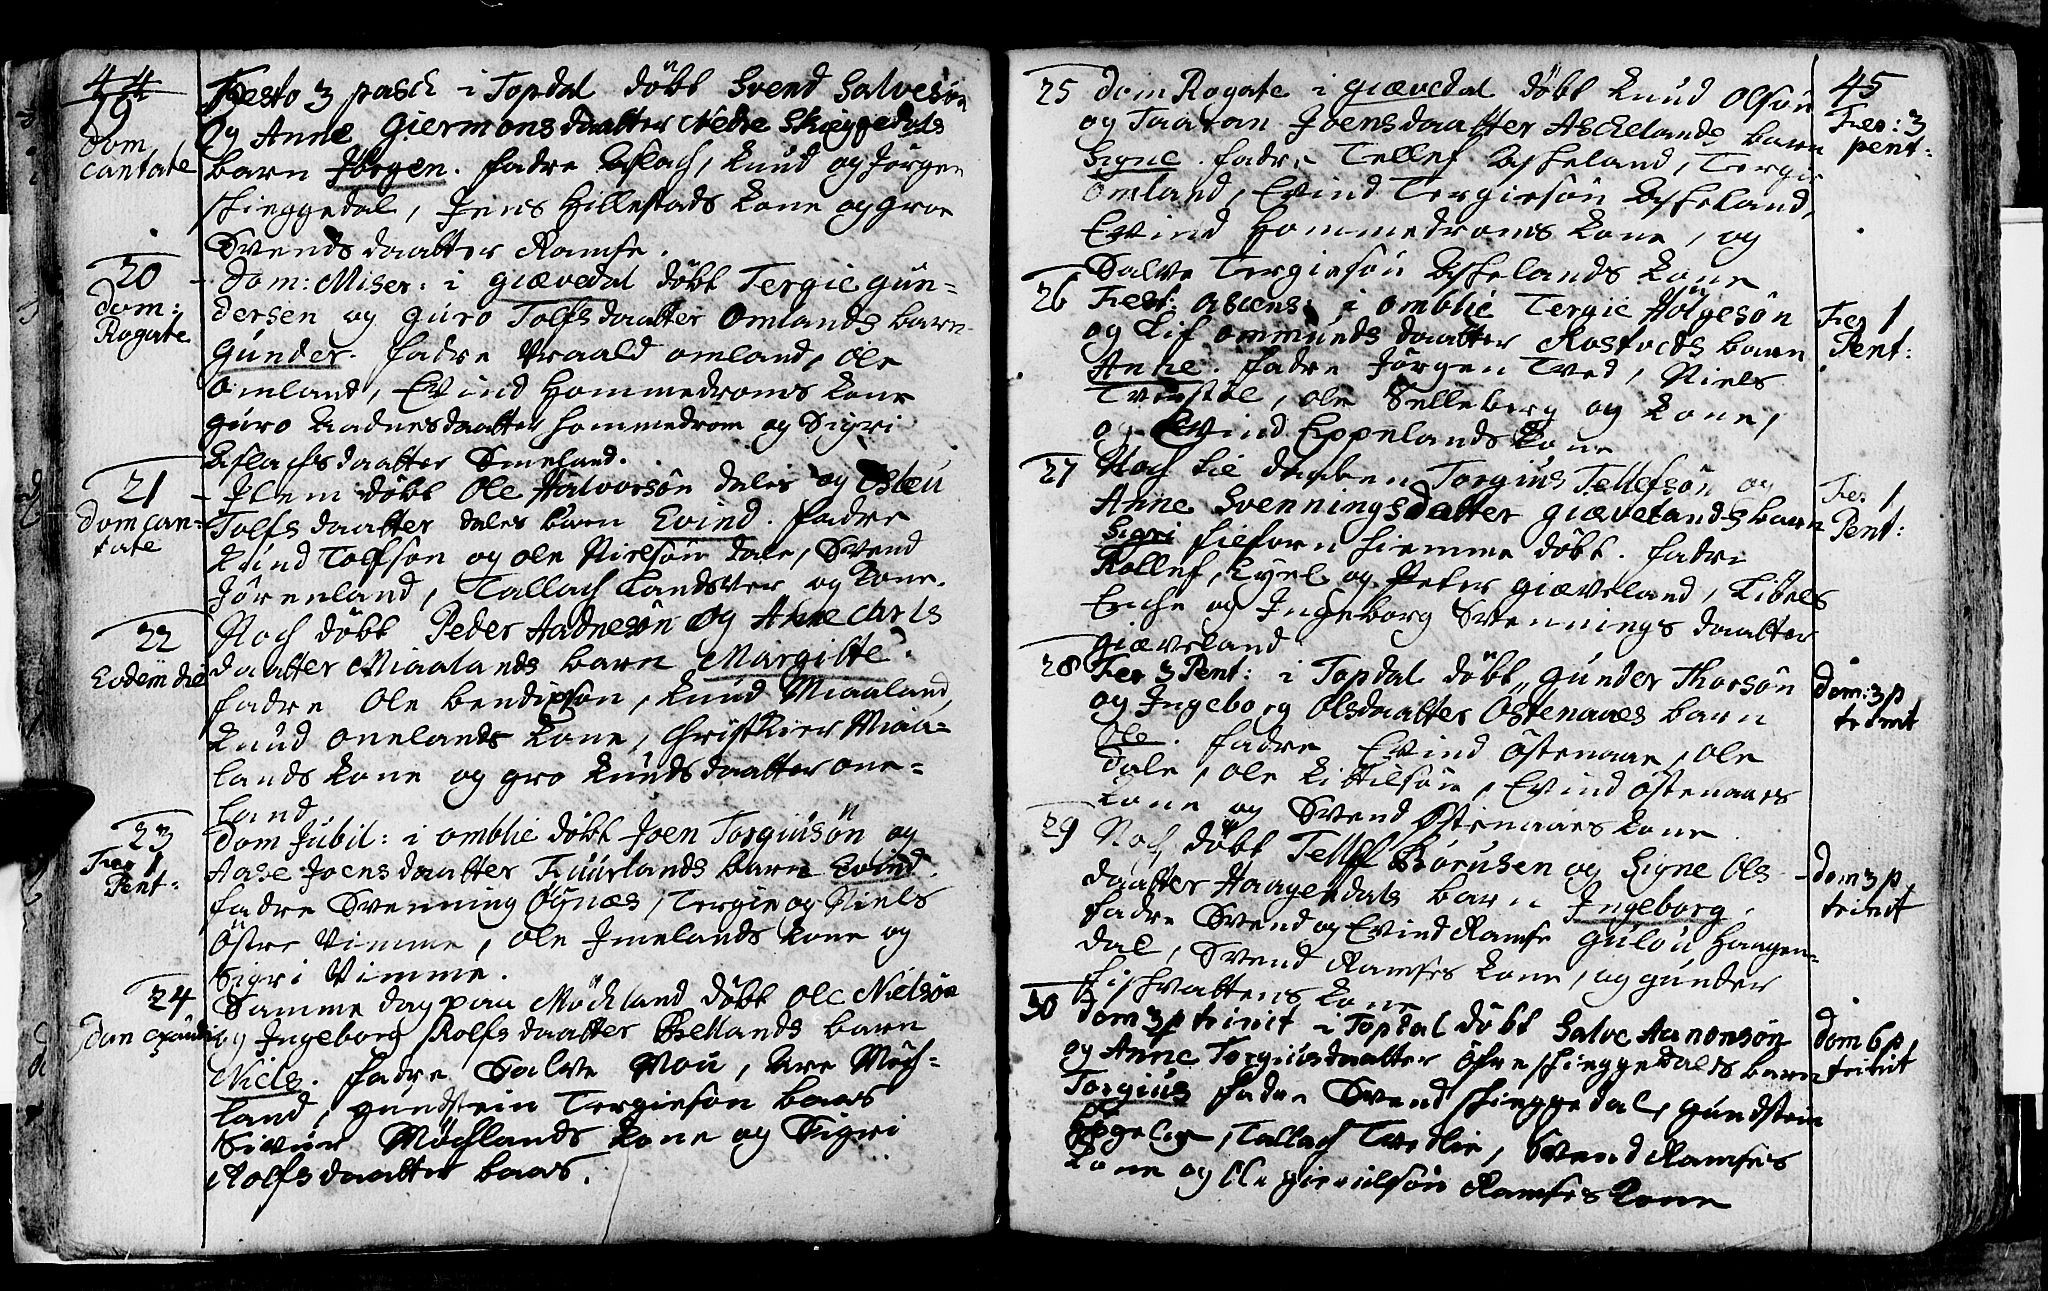 44
19
Dom
Cantate
Festo 3 pasch i Topdal döbt Svend Salvesøn
og Anne Giermonsdaatter Nedre Skieggedals
barn Jörgen. Fadre Aslach, Knud og Jörgen
Skieggedal, Jens Hillestads Kone og Groe
Svends daatter Ramse.
20
Dom:
Rogate
Dom: Miser: i Giævedal döbt Tergie Gun-
dersen og Guro Tolfsdaatter Omlands barn
Gunder. Fadre Vraald Omland, Ole
Omland, Evind Hommedroms Kone
Guro Aadnesdaatter Hommedrom og Sigri
Aslachsdaatter Smeland.
21
Dom Can-
tate
Item döbt Ole Halvorsön Dales og Asleu
Tolfsdaatter Dales barn Evind. Fadre
Knud Tolfsøn og Ole Nielsøn Dale, Svend
Jörenland, Tallach Landsver og Kone.
22
Eodem die
Noch döbt Peder Aadnesön og Anne Carls
daatter Miaalands barn Margitte.
Fadre Ole Bendixsøn, Knud Miaaland,
Knud Onelands Kone, Christkier Miaa-
lands Kone og Gro Knudsdaatter One-
land
23
Fer 1
Pent:
Dom Jubil: i Omblie döbt Joen Torgiusön og
Aase Joensdaatter Fuurlands barn Evind.
Fadre Svenning Ögnæs, Tergie og Niels
Östre Vimme, Ole Jmelands Kone og
Sigri Vimme.
24
Dom exaudi
Samme dag paa Möchland döbt Ole Nielsön
og Ingeborg Rolfsdaatter Bellands barn
Niels. Fadre Salve Mou, Are Möch-
land, Gundstein Tergiesøn Baas
Sivur Möchlands Kone og Sigri
Rolfsdaatter Baas.
45
25
Dom Rogate i Giævedal döbt Knud Olsön
og Taaran Joensdaatter Aschelands barn
Signe. Fadre Tellef Askeland, Tergie
Omland, Evind Tergiesøn Askeland,
Evind Hommedroms Kone, og
Salve Tergiesön Askelands Kone
Fer: 3
pent:
26
Fest: Ascens: i Omblie Tergie Holgesön
og Lif Ommundsdaatter Rostveds barn
Anne. Fadre Jörgen Tved, Niels
Tvedstöl, Ole Selleberg og Kone,
og Evind Eppelands Kone
Fer 1
Pent:
27
Noch til daaben Torgius Tellefsön og
Anne Svenningsdatter Giævelands barn
Sigri tilforn hiemme döbt. Fadre
Rollef, Kyel og Peter Giæveland, Kibels
Eriche og Ingeborg Svennings daatter
Giæveland
Fer 1
Pent:
28
Fer 3 Pent: i Topdal döbt Gunder Thorsön
og Ingeborg Olsdaatter Östenaaes barn
Ole. Fadre Evind Östenaae, Ole
Dale, Ole Kittilsøn, Evind Östenaaes
Kone og Svend Östenaaes Kone
Dom: 3 p
trinit
29
Noch döbt Tellef Börusen og Signe Ols-
daatter Haagendals barn Ingeborg.
Fadre Svend og Evind Ramse Gulou Haagen-
dal, Svend Ramses Kone, og Gunder
Fischvattens Kone
Dom 3 p
trinit
30
Dom 3 p trinit i Topdal döbt Salve Aanonsön
og Anne Torgiusdaatter Öfre Skieggedals barn
Torgius Fadre Svend Skieggedal, Gundstein
Tallach Tvedlie, Svend Ramses
Kone og Ole Gierulsön Ramses Kone
Dom 6 p
trinit